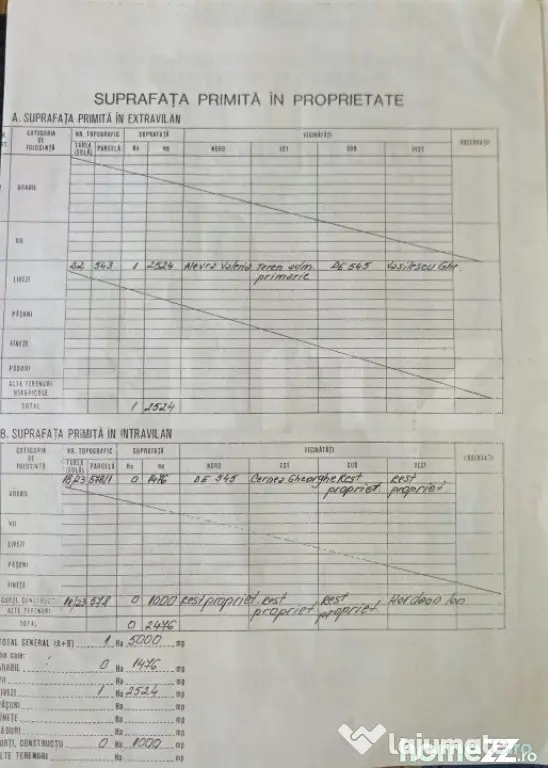 SUPRAFAȚA PRIMITĂ ÎN PROPRIETATE
A. SUPRAFAȚA PRIMITĂ ÎN EXTRAVILAN
CATEGORIA DE FOLOSINȚĂ NR. TOPOGRAFIC SUPRAFAȚĂ VECINĂTĂȚI OBSERVAȚII
TARLA (SOLA) PARCELA Ha mp NORD EST SUD VEST
ARABIL
VII
LIVEZI 22 543 1 2524 Alevra Valeria Teren adm. primarie DE 545 Vasilescu Ghe
PĂȘUNI
FÎNEȚE
PĂDURI
ALTE TERENURI NEAGRICOLE
TOTAL 1 2524
B. SUPRAFAȚA PRIMITĂ ÎN INTRAVILAN
CATEGORIA DE FOLOSINȚĂ NR. TOPOGRAFIC SUPRAFAȚĂ VECINĂTĂȚI OBSERVAȚII
TARLA (SOLA) PARCELA Ha mp NORD EST SUD VEST
ARABIL 18/23 578/1 0 1476 DE 545 Cernea Gheorghe Rest propriet Rest propriet
VII
LIVEZI
PĂȘUNI
FÎNEȚE
CURȚI, CONSTRUCȚII ALTE TERENURI 18/23 578 0 1000 Rest propriet. Rest propriet. Rest propriet. Ion
TOTAL 0 2476
TOTAL GENERAL (A+B) 1 Ha 5000 mp
din care:
ARABIL 0 Ha 1476 mp
VII Ha mp
LIVEZI 1 Ha 2524 mp
PĂȘUNI Ha mp
FÎNEȚE Ha mp
PĂDURI Ha mp
CURȚI, CONSTRUCȚII 0 Ha 1000 mp
ALTE TERENURI Ha mp
Lajumate.ro
homezz.ro